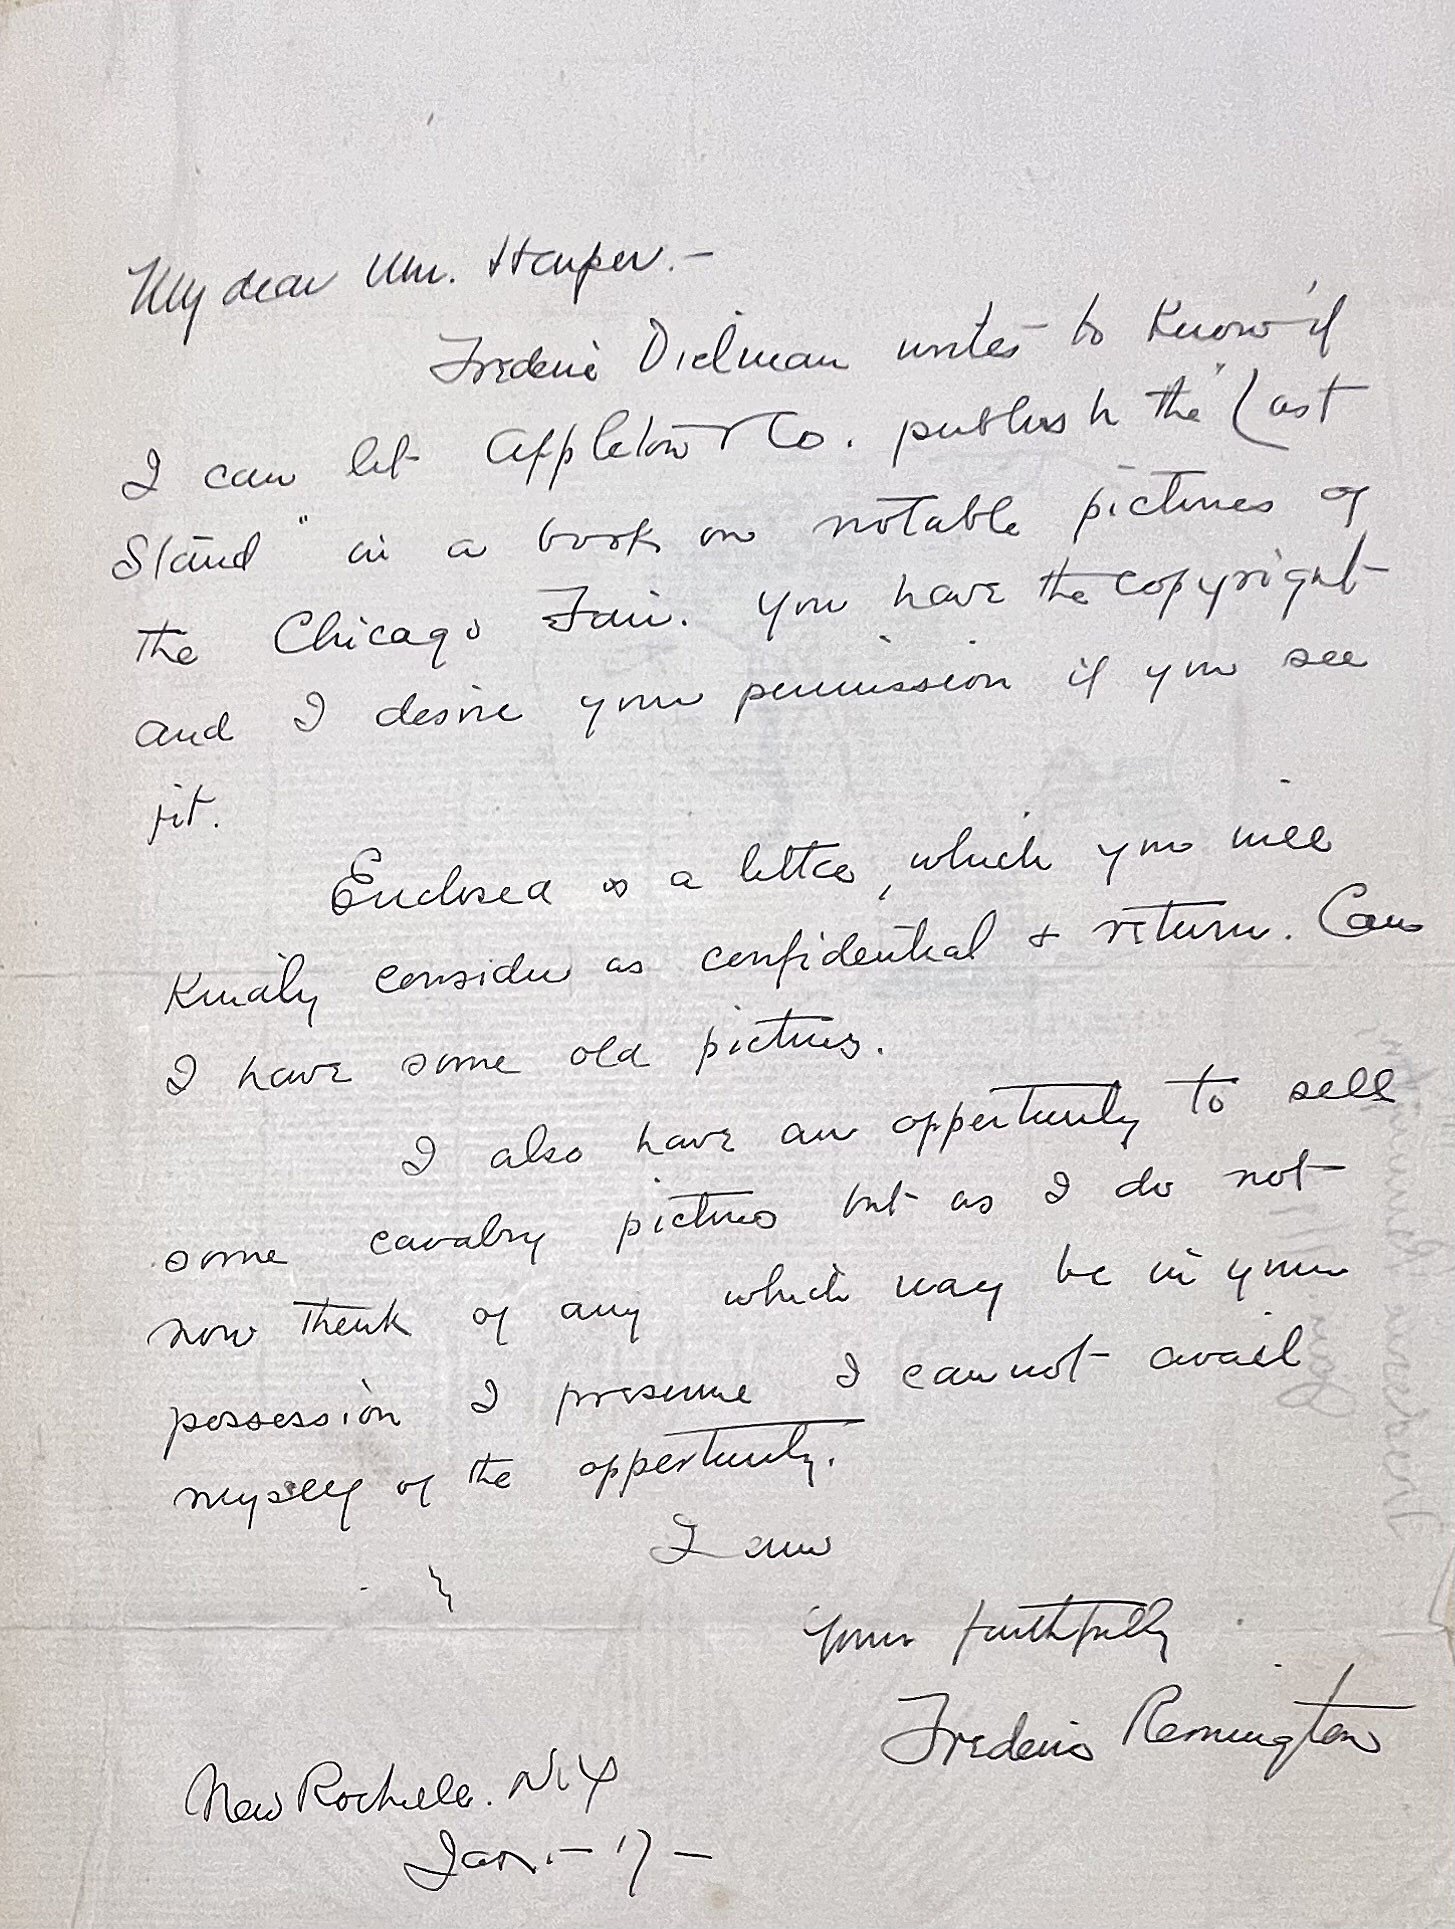 My dear Mr. Harper.—
Frederic Dielman writes to know if
I can let Appleton & Co. publish the "Last
Stand" in a book on notable pictures of
the Chicago Fair. You have the copyright
and I desire your permission if you see
fit.
Enclosed is a letter, which you will
kindly consider as confidential & return. Can
I have some old pictures.
I also have an opportunity to sell
some cavalry pictures but as I do not
now think of any which may be in your
possession I presume I cannot avail
myself of the opportunity.
I am
Yours faithfully
Frederic Remington
New Rochelle. N.Y
Jan.— 17 —